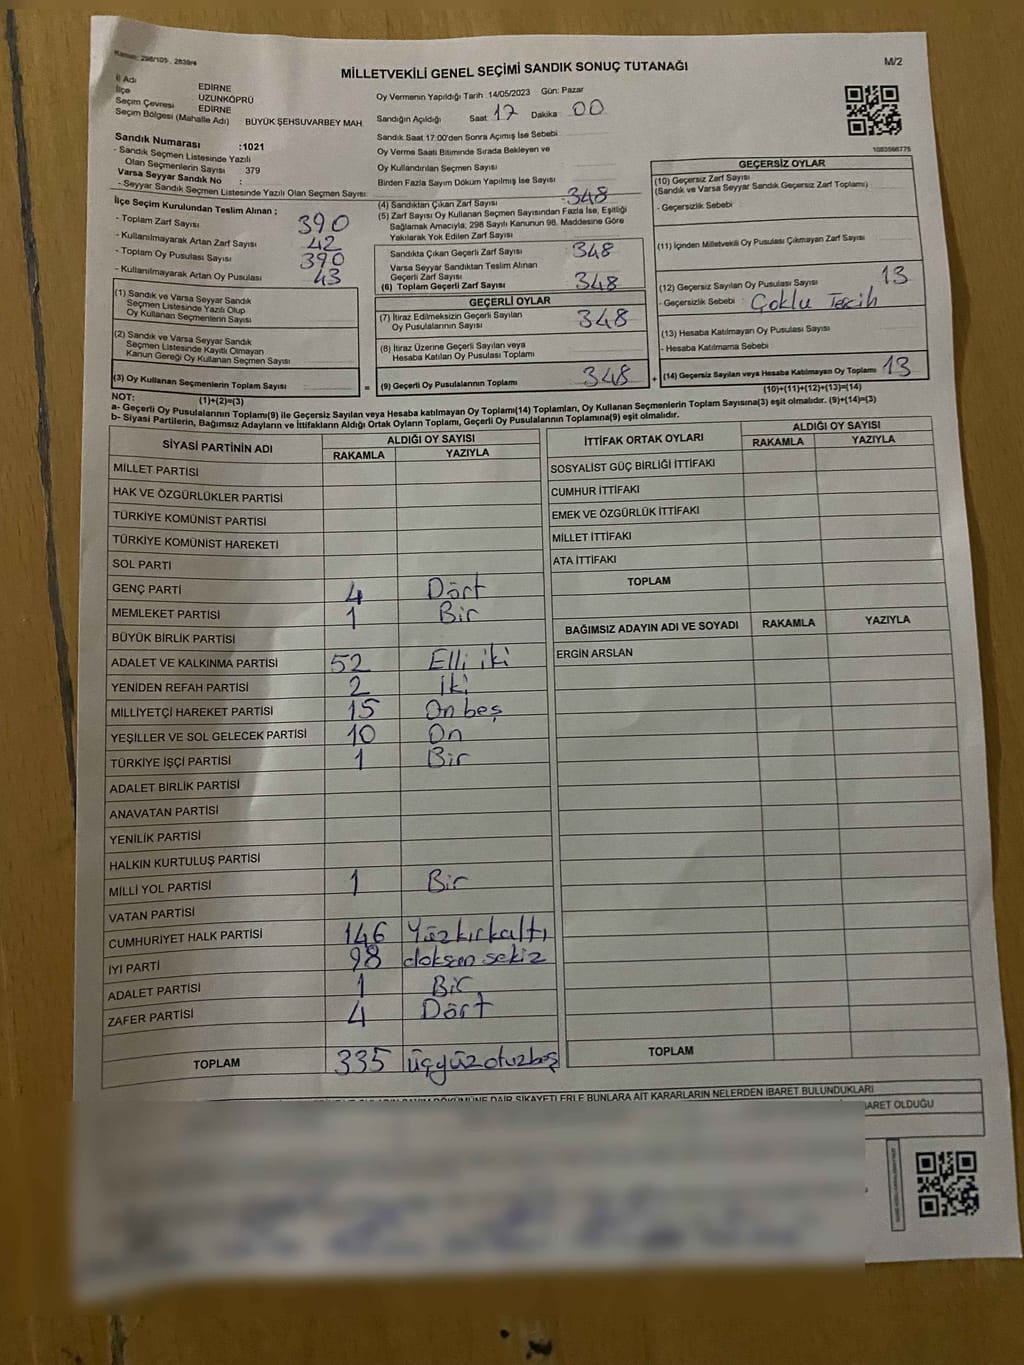 Kanun: 298/105 , 2839/4
MİLLETVEKİLİ GENEL SEÇİMİ SANDIK SONUÇ TUTANAĞI
M/2
İl Adı EDİRNE
İlçe UZUNKÖPRÜ
Seçim Çevresi EDİRNE
Seçim Bölgesi (Mahalle Adı) BÜYÜK ŞEHSUVARBEY MAH.
Oy Vermenin Yapıldığı Tarih 14/05/2023 Gün: Pazar
Sandığın Açıldığı Saat 17 Dakika 00
Sandık Saat 17:00'den Sonra Açımış İse Sebebi
Oy Verme Saati Bitiminde Sırada Bekleyen ve
Oy Kullandırılan Seçmen Sayısı
Birden Fazla Sayım Döküm Yapılmış İse Sayısı
1083566775
Sandık Numarası :1021
- Sandık Seçmen Listesinde Yazılı
Olan Seçmenlerin Sayısı 379
Varsa Seyyar Sandık No :
- Seyyar Sandık Seçmen Listesinde Yazılı Olan Seçmen Sayısı
İlçe Seçim Kurulundan Teslim Alınan ;
- Toplam Zarf Sayısı 390
- Kullanılmayarak Artan Zarf Sayısı 42
- Toplam Oy Pusulası Sayısı 390
- Kullanılmayarak Artan Oy Pusulası 43
(1) Sandık ve Varsa Seyyar Sandık
Seçmen Listesinde Yazılı Olup
Oy Kullanan Seçmenlerin Sayısı
(2) Sandık ve Varsa Seyyar Sandık
Seçmen Listesinde Kayıtlı Olmayan
Kanun Gereği Oy Kullanan Seçmen Sayısı
(3) Oy Kullanan Seçmenlerin Toplam Sayısı
(1)+(2)=(3)
(4) Sandıktan Çıkan Zarf Sayısı 348
(5) Zarf Sayısı Oy Kullanan Seçmen Sayısından Fazla İse, Eşitliği
Sağlamak Amacıyla, 298 Sayılı Kanunun 98. Maddesine Göre
Yakılarak Yok Edilen Zarf Sayısı
Sandıkta Çıkan Geçerli Zarf Sayısı 348
Varsa Seyyar Sandıktan Teslim Alınan
Geçerli Zarf Sayısı
(6) Toplam Geçerli Zarf Sayısı 348
GEÇERLİ OYLAR
(7) İtiraz Edilmeksizin Geçerli Sayılan
Oy Pusulalarının Sayısı 348
(8) İtiraz Üzerine Geçerli Sayılan veya
Hesaba Katılan Oy Pusulası Toplamı
= (9) Geçerli Oy Pusulalarının Toplamı 348 +
GEÇERSİZ OYLAR
(10) Geçersiz Zarf Sayısı
(Sandık ve Varsa Seyyar Sandık Geçersiz Zarf Toplamı)
- Geçersizlik Sebebi :
(11) İçinden Milletvekili Oy Pusulası Çıkmayan Zarf Sayısı
(12) Geçersiz Sayılan Oy Pusulası Sayısı 13
- Geçersizlik Sebebi : Çoklu Tercih
(13) Hesaba Katılmayan Oy Pusulası Sayısı
- Hesaba Katılmama Sebebi
(14) Geçersiz Sayılan veya Hesaba Katılmayan Oy Toplamı 13
(10)+(11)+(12)+(13)=(14)
NOT:
a- Geçerli Oy Pusulalarının Toplamı(9) ile Geçersiz Sayılan veya Hesaba katılmayan Oy Toplamı(14) Toplamları, Oy Kullanan Seçmenlerin Toplam Sayısına(3) eşit olmalıdır. (9)+(14)=(3)
b- Siyasi Partilerin, Bağımsız Adayların ve İttifakların Aldığı Ortak Oyların Toplamı, Geçerli Oy Pusulalarının Toplamına(9) eşit olmalıdır.
SİYASİ PARTİNİN ADI ALDIĞI OY SAYISI
RAKAMLA YAZIYLA
MİLLET PARTİSİ
HAK VE ÖZGÜRLÜKLER PARTİSİ
TÜRKİYE KOMÜNİST PARTİSİ
TÜRKİYE KOMÜNİST HAREKETİ
SOL PARTİ
GENÇ PARTİ 4 Dört
MEMLEKET PARTİSİ 1 Bir
BÜYÜK BİRLİK PARTİSİ
ADALET VE KALKINMA PARTİSİ 52 Elli iki
YENİDEN REFAH PARTİSİ 2 İki
MİLLİYETÇİ HAREKET PARTİSİ 15 On beş
YEŞİLLER VE SOL GELECEK PARTİSİ 10 On
TÜRKİYE İŞÇİ PARTİSİ 1 Bir
ADALET BİRLİK PARTİSİ
ANAVATAN PARTİSİ
YENİLİK PARTİSİ
HALKIN KURTULUŞ PARTİSİ
MİLLİ YOL PARTİSİ 1 Bir
VATAN PARTİSİ
CUMHURİYET HALK PARTİSİ 146 Yüzkırkaltı
İYİ PARTİ 98 doksan sekiz
ADALET PARTİSİ 1 Bir
ZAFER PARTİSİ 4 Dört
TOPLAM 335 üçyüzotuzbeş
İTTİFAK ORTAK OYLARI ALDIĞI OY SAYISI
RAKAMLA YAZIYLA
SOSYALİST GÜÇ BİRLİĞİ İTTİFAKI
CUMHUR İTTİFAKI
EMEK VE ÖZGÜRLÜK İTTİFAKI
MİLLET İTTİFAKI
ATA İTTİFAKI
TOPLAM
BAĞIMSIZ ADAYIN ADI VE SOYADI RAKAMLA YAZIYLA
ERGİN ARSLAN
TOPLAM
DÖKÜMÜNE DAİR ŞİKAYETLERLE BUNLARA AİT KARARLARIN NELERDEN İBARET BULUNDUKLARI
İBARET OLDUĞU